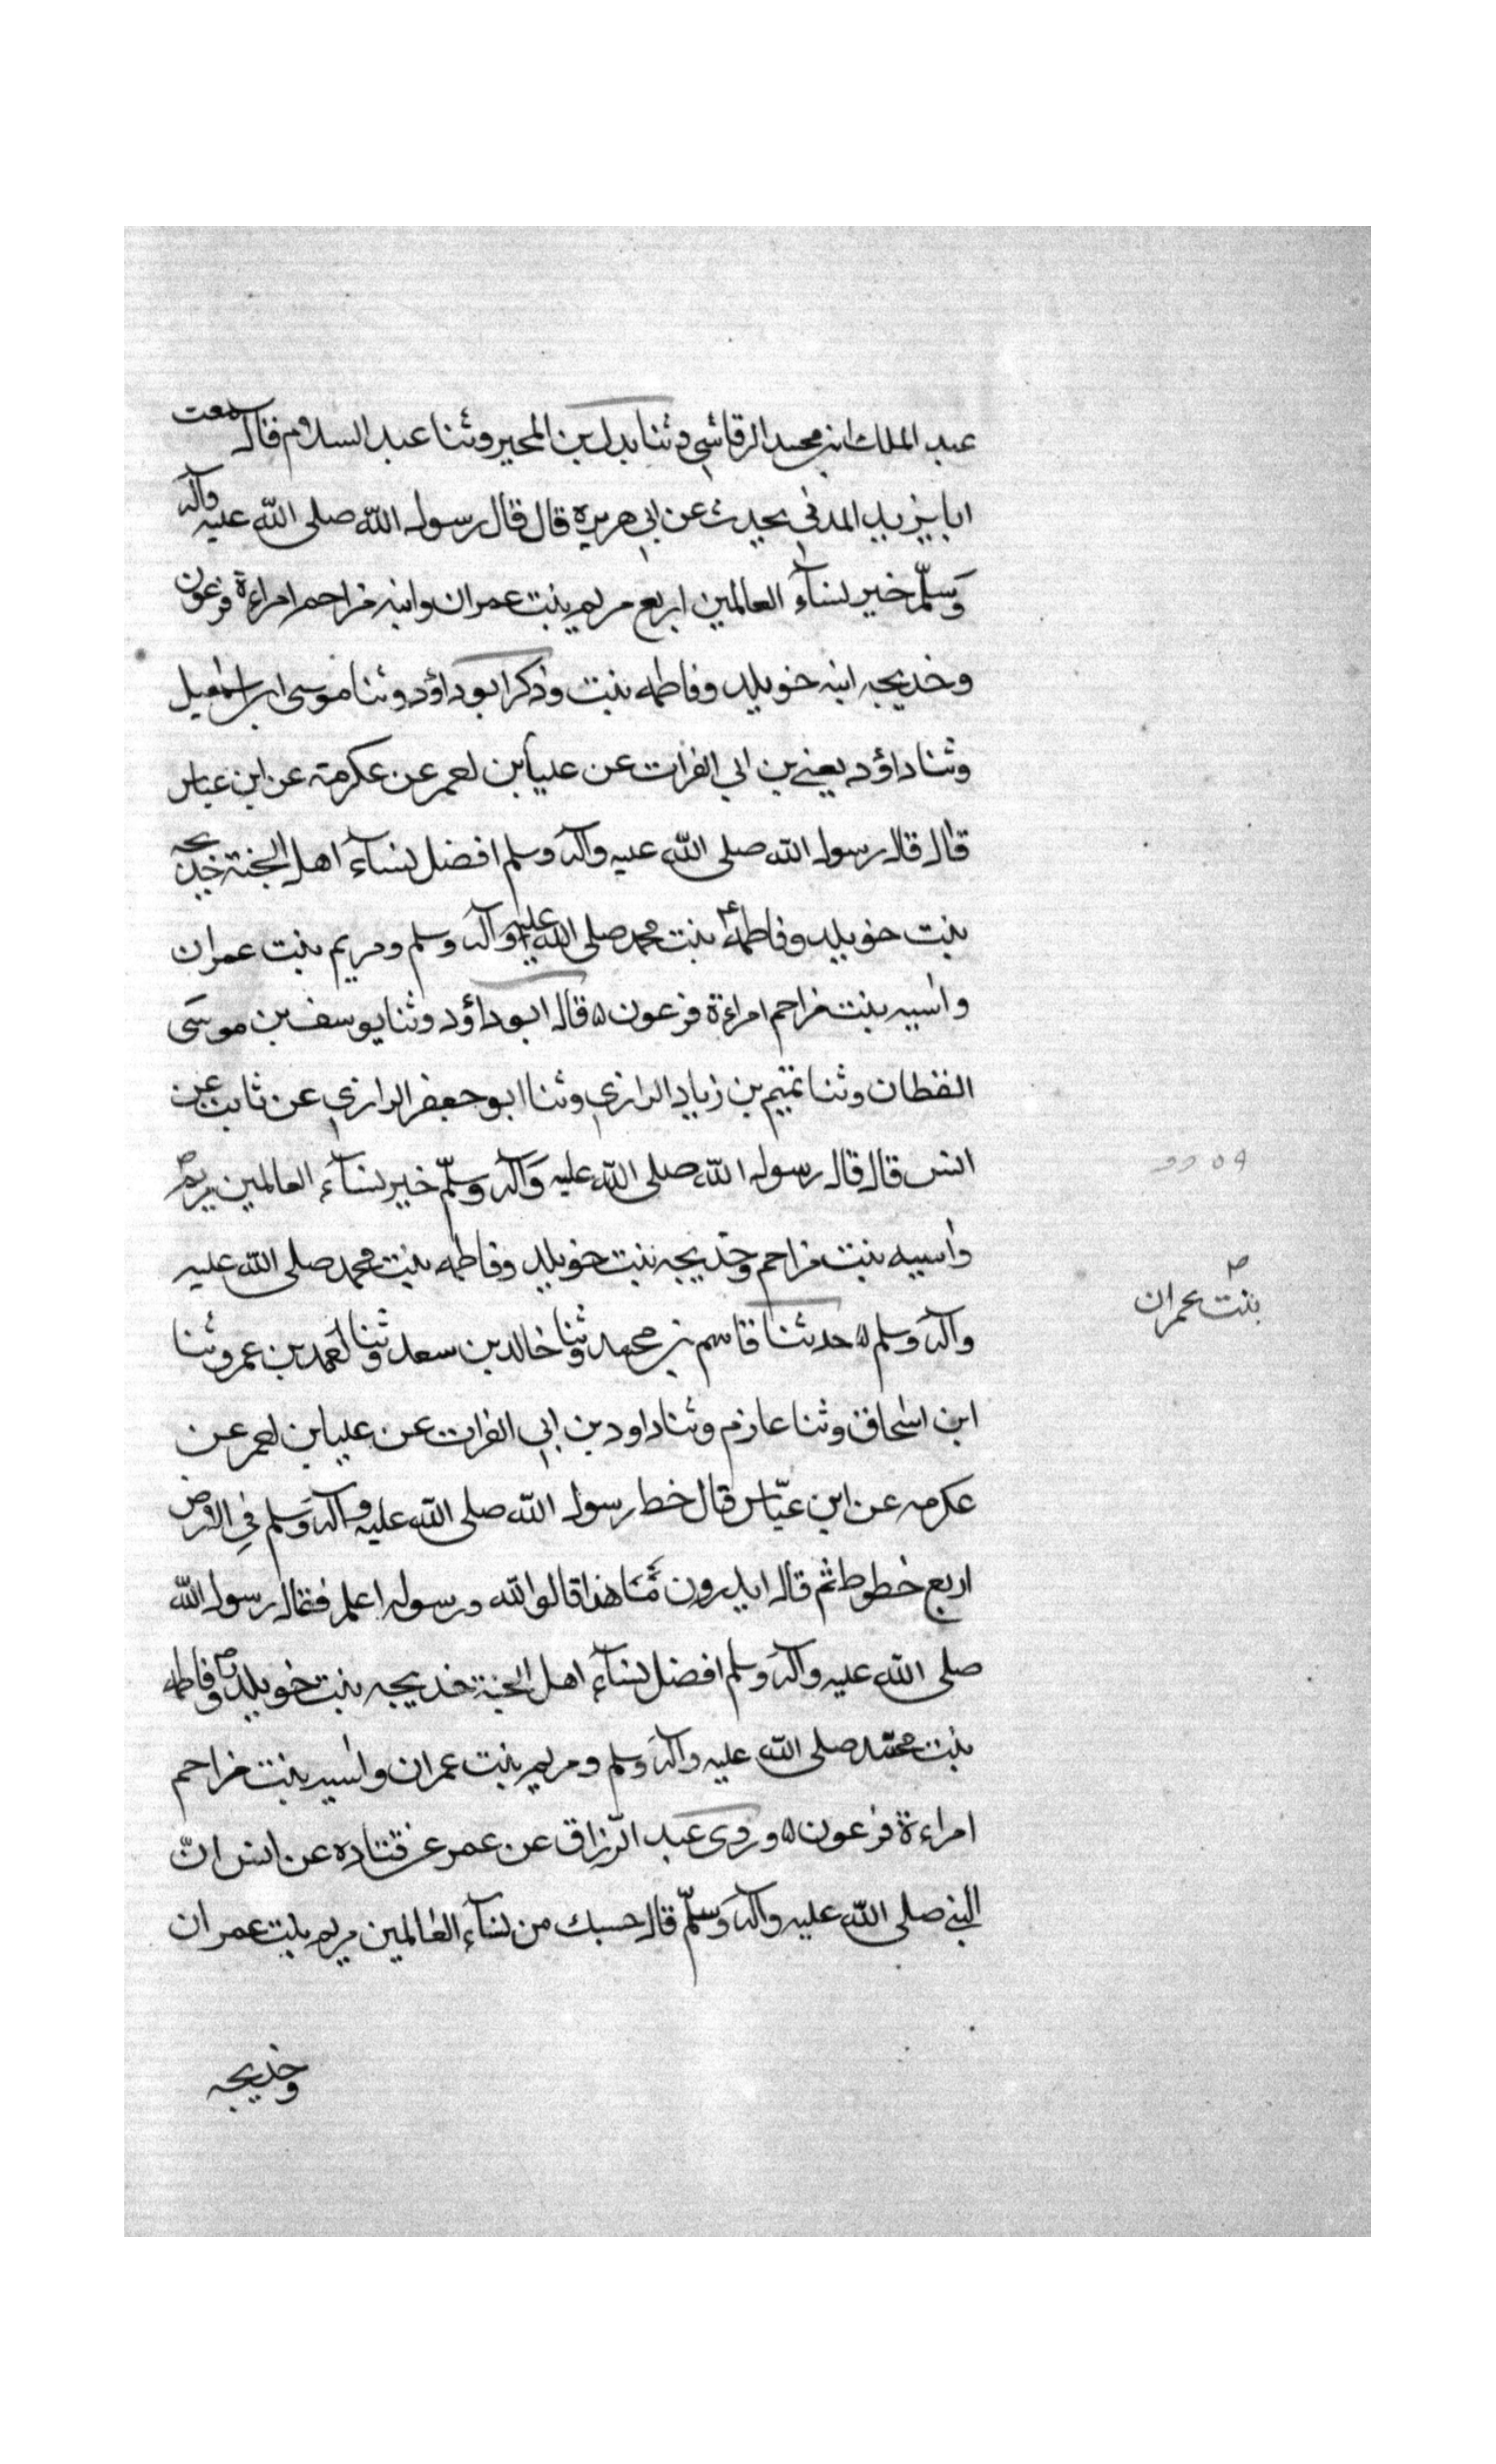 عبد الملك ابن محمد الرقاشي وثنا بدل بن المحبر وثنا عبد السلام قال سمعت
ابا يزيد المدني يحدث عن ابي هريرة قال قال رسول الله صلى الله عليه وآله
وَسلّم خير نسآء العالمين اربع مريم بنت عمران وابنه مزاحم امراءة فرعون
وخديجه ابنه خويلد وفاطمه بنت وذكر ابو داؤد وثنا موسى ابن اسمعيل
وثنا داؤد يعني بن ابي الفرات عن عليا بن لعمر عن عكرمة عن ابن عباس
قال قال رسول الله صلى الله عليه وآله وسلم افضل نسآء اهل الجنة خديجه
بنت خويلد وفاطمه بنت محمد صلى الله عليه وآله وسلم ومريم بنت عمران
واسيه بنت مزاحم امراءة فرعون ۵ قال ابو داؤد وثنا يوسف بن موسَى
القطان وثنا تميم بن زياد الرازي وثنا ابو جعفر الرازي عن ثابت عن
انس قال قال رسول الله صلى الله عليه وَآله وسلّم خير نسآء العالمين مريم
بنت عمران
واسيه بنت مزاحم وخديجه بنت خويلد وفاطمه بنت محمد صلى الله عليه
وآله وسلم ۵ حدثنا قاسم بن محمد وثنا خالد بن سعد وثنا احمد بن عمر وثنا
ابن اسحاق وثنا عازم وثنا داود بن ابي الفرات عن عليا بن لعمر عن
عكرمه عن ابن عبّاس قال خط رسول الله صلى الله عليه وآله وَسلم في الارض
اربع خطوط ثم قال ايدرون مَا هذا قالوا الله ورسوله اعلم فقال رسول الله
صلى الله عليه وآله وسلم افضل نسآء اهل الجنة خديجه بنت خويلد وفاطمه
بنت محمّد صلى الله عليه وآله وسلم ومريم بنت عمران واسيه بنت مزاحم
امراءة فرعون ۵ وروى عبد الرّزاق عن عمر عن قتاده عن انس انّ
النبي صلى الله عليه وآله وَسلّم قال حسبك من نسآء العالمين مريم بنت عمران
وخديجه